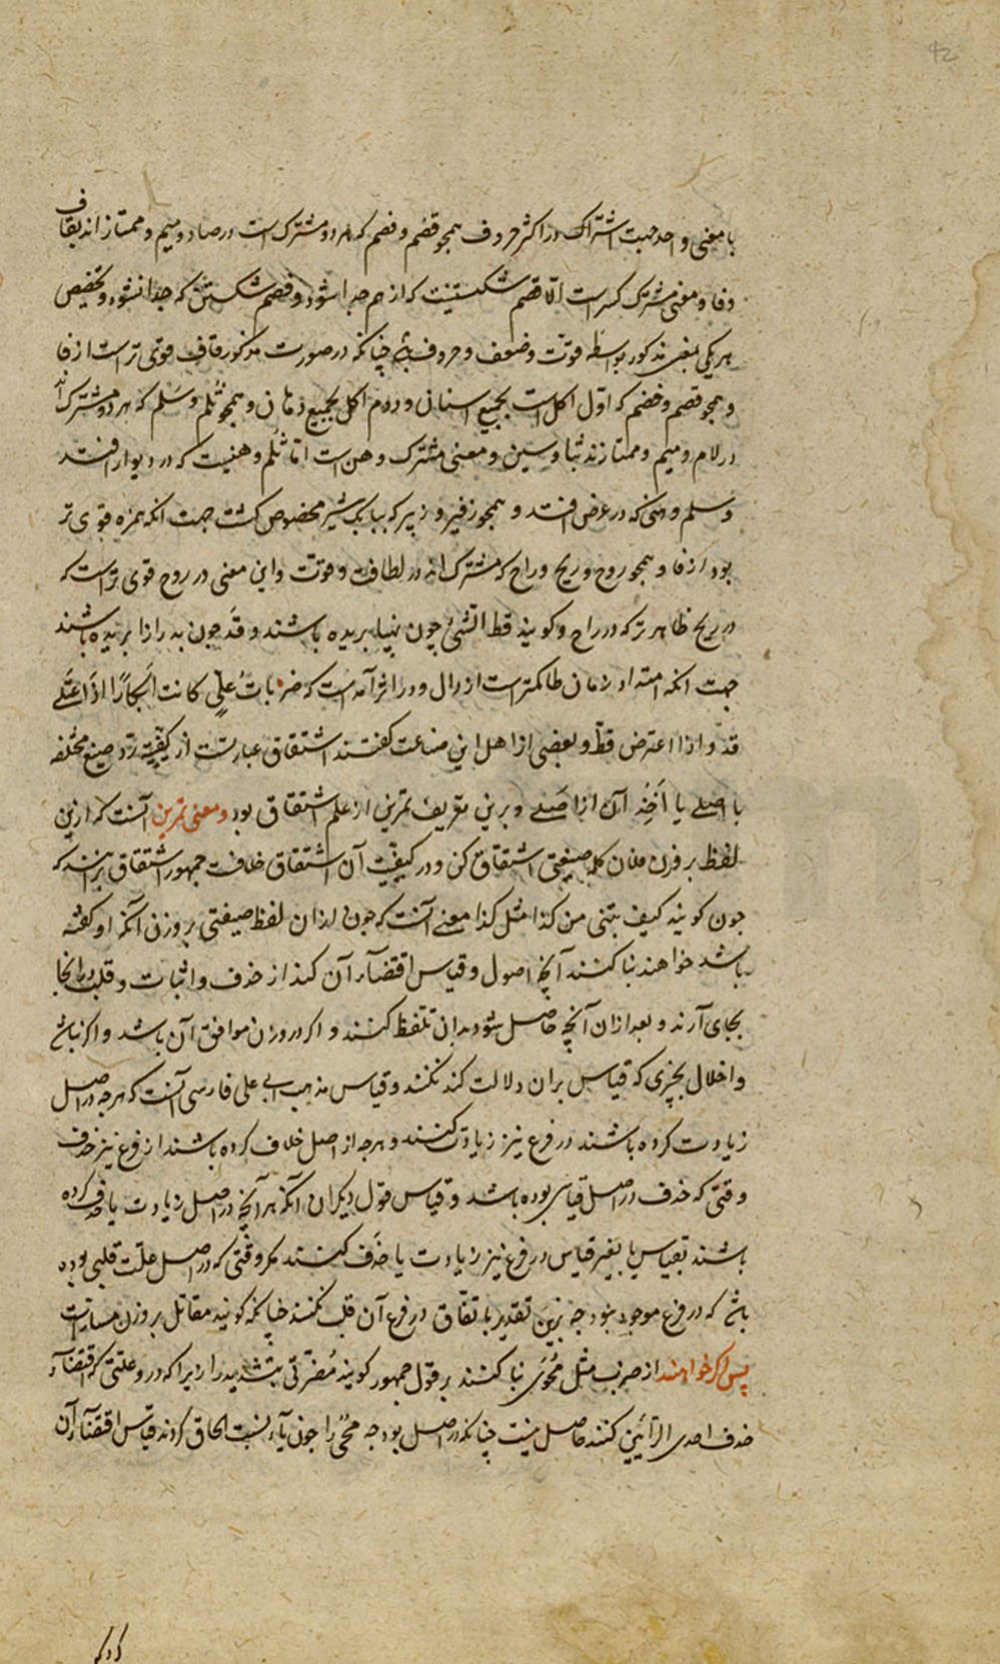 با معنی واحد جهت اشتراک در اکثر حروف همچو قصم و فصم که هر دو مشترک است در صاد و میم و ممتاز اند بقاف
و فا و معنی مشترک کسر است الّا قصم شکستنیست که از هم جدا شود و فصم شکستن که جدا نشود و تخصیص
هر یکی بمعنی مذکور بواسطه قوّت و ضعف و حروف باشد چنانکه در صورت مذکور قاف قوی تر است از فا
و همچو قضم و خضم که اوّل اکل است بجمیع اسنان و دوم اکل بجمیع دهان و همچو ثلم و سلم که هر دو مشترک اند
در لام و میم و ممتازند بثا و سین و معنی مشترک وهن است امّا ثلم وهنیست که در دیوار افتد
و سلم وهنی که در عرض افتد و همچو زفیر و زییر که ببانک شیر مخصوص کشت جهت انکه همزه قوی تر
بود از فا و همچو روح و ریح و راح که مشترک اند در لطافت و قوّت و این معنی در روح قوی تر است که
در ریح ظاهرتر که در راح و کویند قط الشئ چون بپهنا بریده باشند و قدّ چون بدرازا بریده باشند
جهت انکه امتداد زمان طا کمتر است از دال و در اثر آمده است که ضربات علی کانت ابکارًا اذا اعتلے
قدّ و اذا اعترض قطّ و بعضی از اهل این صناعت کفتند اشتقاق عبارتست از کیفیّت ردّ صیغ مختلفه
با اصلے یا اخذ آن از اصلے و برین تعریف تمرین از علم اشتقاق بود و معنی تمرین آنست که ازین
لفظ بر وزن فلان کلمه صیغتی اشتقاق کن و در کیفیّت آن اشتقاق خلافست جمهور اشتقاق برانند که
چون کویند کیف تبنی من کذا مثل کذا معنے آنست که چون از ان لفظ صیغتی بر وزن آنکه او کفته
باشد خواهند بنا کنند آنچه اصول و قیاس اقتضاء آن کند از حذف و اثبات و قلب در انجا
بجای آرند و بعد از ان آنچه حاصل شود بدان تلفظ کنند و اکر در وزن موافق آن باشد و اکر نباشد
و اخلال بچیزی که قیاس بران دلالت کند نکنند و قیاس مذهب ابی علی فارسی آنست که هر چه در اصل
زیادت کرده باشند در فرع نیز زیادت کنند و هر چه از اصل حذف کرده باشند از فرع نیز حذف
وقتی که حذف در اصل قیاسی بوده باشد و قیاس قول دیکران آنکه هر آنچه در اصل زیادت یا حذف کرده
باشند بقیاس یا بغیر قیاس در فرع نیز زیادت یا حذف کنند مکر وقتی که در اصل علّت قلبی بوده
باشد که در فرع موجود نبود چه برین تقدیر باتفاق در فرع آن قلب نکنند چنانکه کویند مقاتل بر وزن
پس اکر خواهند از ضرب مثل محوی بنا کنند بر قول جمهور کویند مضربی بتشدید را زیرا که در و علتی که اقتضاء
حذف احدی الرائین کند حاصل نیست چنانکه در اصل بود چه محیّی را چون یاء نسبت الحاق کردند قیاس اقتضاء آن
کرد که